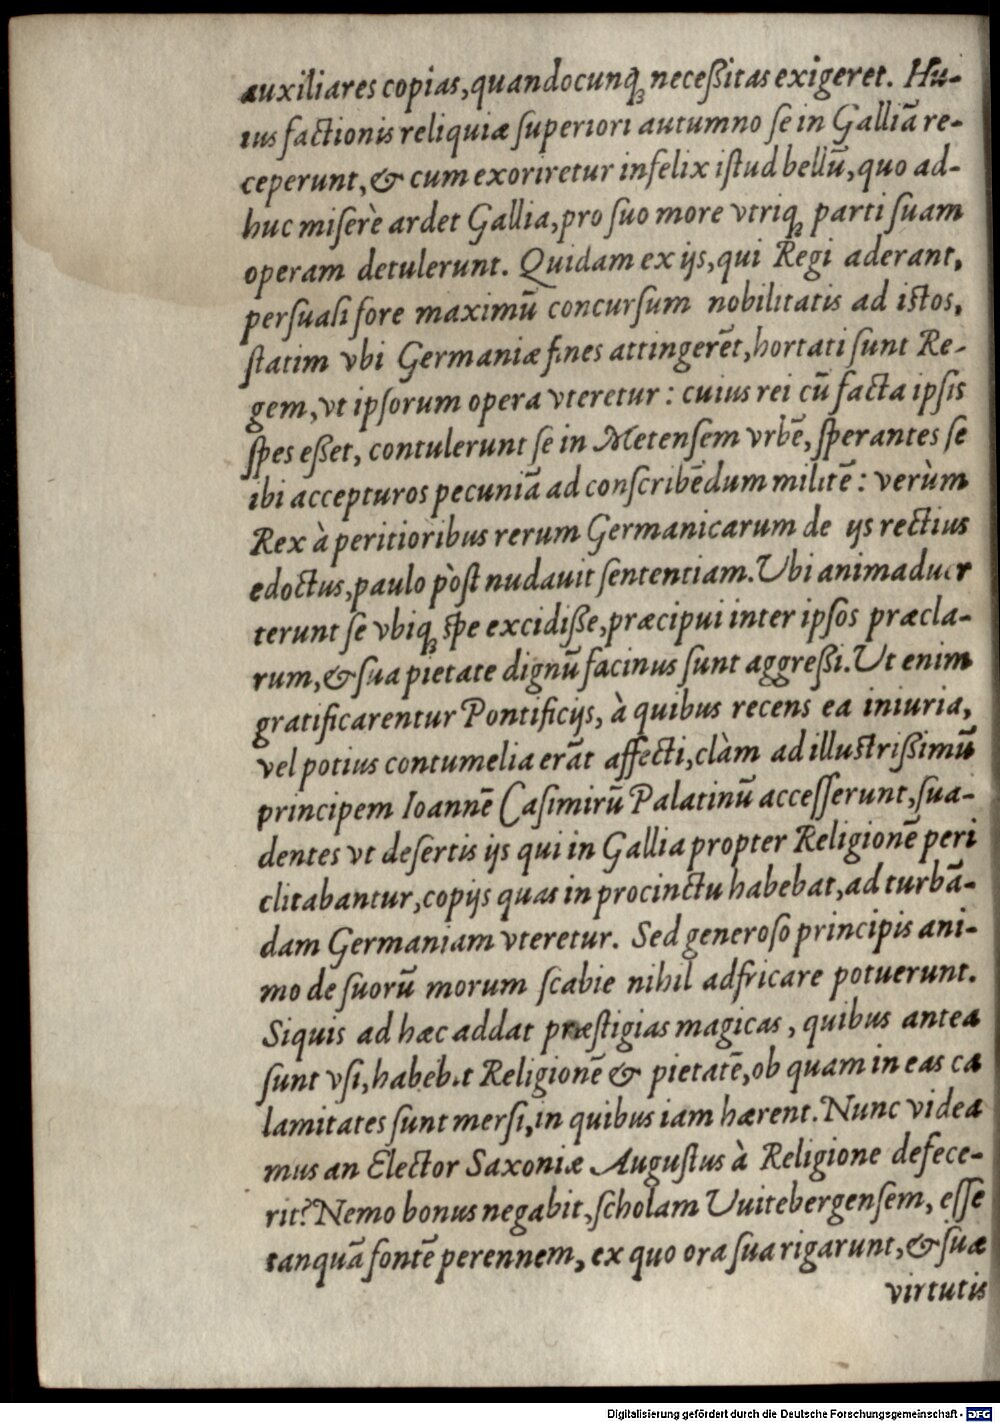 auxiliares copias, quandocunq; neceßitas exigeret. Hu-
ius factionis reliquiæ ſuperiori autumno ſe in Galliā re-
ceperunt, & cum exoriretur infelix iſtud bellū, quo ad-
huc miſerè ardet Gallia, pro ſuo more vtriq; parti ſuam
operam detulerunt. Quidam ex ijs, qui Regi aderant,
perſuaſi fore maximū concurſum nobilitatis ad iſtos,
ſtatim vbi Germaniæ fines attingerēt, hortati ſunt Re-
gem, vt ipſorum opera vteretur : cuius rei cū facta ipſis
ſpes eßet, contulerunt ſe in Metenſem vrbē, ſperantes ſe
ibi accepturos pecuniā ad conſcribēdum militē : verùm
Rex à peritioribus rerum Germanicarum de ijs rectius
edoctus, paulo pòſt nudauit ſententiam. Ubi animaduer
terunt ſe vbiq; ſpe excidiße, præcipui inter ipſos præcla-
rum, & ſua pietate dignū facinus ſunt aggreßi. Ut enim
gratificarentur Pontificijs, à quibus recens ea iniuria,
vel potius contumelia erāt affecti, clàm ad illuſtrißimū
principem Ioannē Caſimirū Palatinū acceſſerunt, ſua-
dentes vt deſertis ijs qui in Gallia propter Religionē peri
clitabantur, copijs quas in procinctu habebat, ad turbā-
dam Germaniam vteretur. Sed generoſo principis ani-
mo de ſuorū morum ſcabie nihil adfricare potuerunt.
Siquis ad hæc addat præſtigias magicas, quibus antea
ſunt vſi, habebit Religionē & pietatē, ob quam in eas ca
lamitates ſunt merſi, in quibus iam hærent. Nunc videa
mus an Elector Saxoniæ Auguſtus à Religione defece-
rit? Nemo bonus negabit, ſcholam Uuitebergenſem, eſſe
tanquā fontē perennem, ex quo ora ſua rigarunt, & ſuæ
virtutis
Digitalisierung gefördert durch die Deutsche Forschungsgemeinschaft - DFG